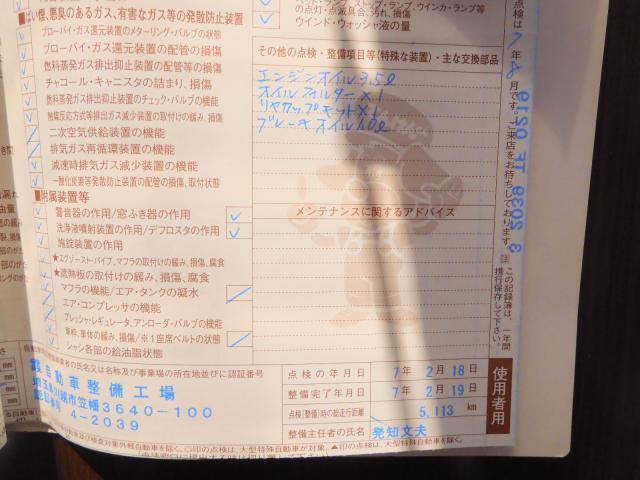 ばい煙、悪臭のあるガス、有害なガス等の発散防止装置
ブローバイ・ガス還元装置のメターリング・バルブの状態
ブローバイ・ガス還元装置の配管の損傷
燃料蒸発ガス排出抑止装置の配管等の損傷
チャコール・キャニスタの詰まり、損傷
燃料蒸発ガス排出抑止装置のチェック・バルブの機能
触媒反応方式等排出ガス減少装置の取付けの緩み、損傷
二次空気供給装置の機能
排気ガス再循環装置の機能
減速時排気ガス減少装置の機能
一酸化炭素等発散防止装置の配管の損傷、取付状態
■附属装置等
警音器の作用/窓ふき器の作用
洗浄液噴射装置の作用/デフロスタの作用
施錠装置の作用
★エグゾーストパイプ、マフラの取付けの緩み、損傷、腐食
★遮熱板の取付けの緩み、損傷、腐食
マフラの機能/エア・タンクの凝水
エア・コンプレッサの機能
プレッシャ・レギュレータ、アンローダ・バルブの機能
車枠、車体の緩み、損傷/※1座席ベルトの状態
シャシ各部の給油脂状態
の点灯・点滅具合、汚れ、損傷
ウインド・ウォッシャ液の量
その他の点検・整備項目等(特殊な装置)・主な交換部品
エンジンオイル3.5ℓ
オイルフィルター×1
リヤカップキット×1
ブレーキオイル1.0ℓ
メンテナンスに関するアドバイス
点検は7年8月です。ご来店をお待ちしております。
3 2039 TF 0219
この記録簿は、一年間携行保存して下さい。
使用者用
事業者の氏名又は名称及び事業場の所在地並びに認証番号
自動車整備工場
川越市笠幡3640-100
4-2039
点検の年月日 7年 2月 18日
整備完了年月日 7年 2月 19日
点検(整備)時の総走行距離 5,113 km
整備主任者の氏名 発知文夫